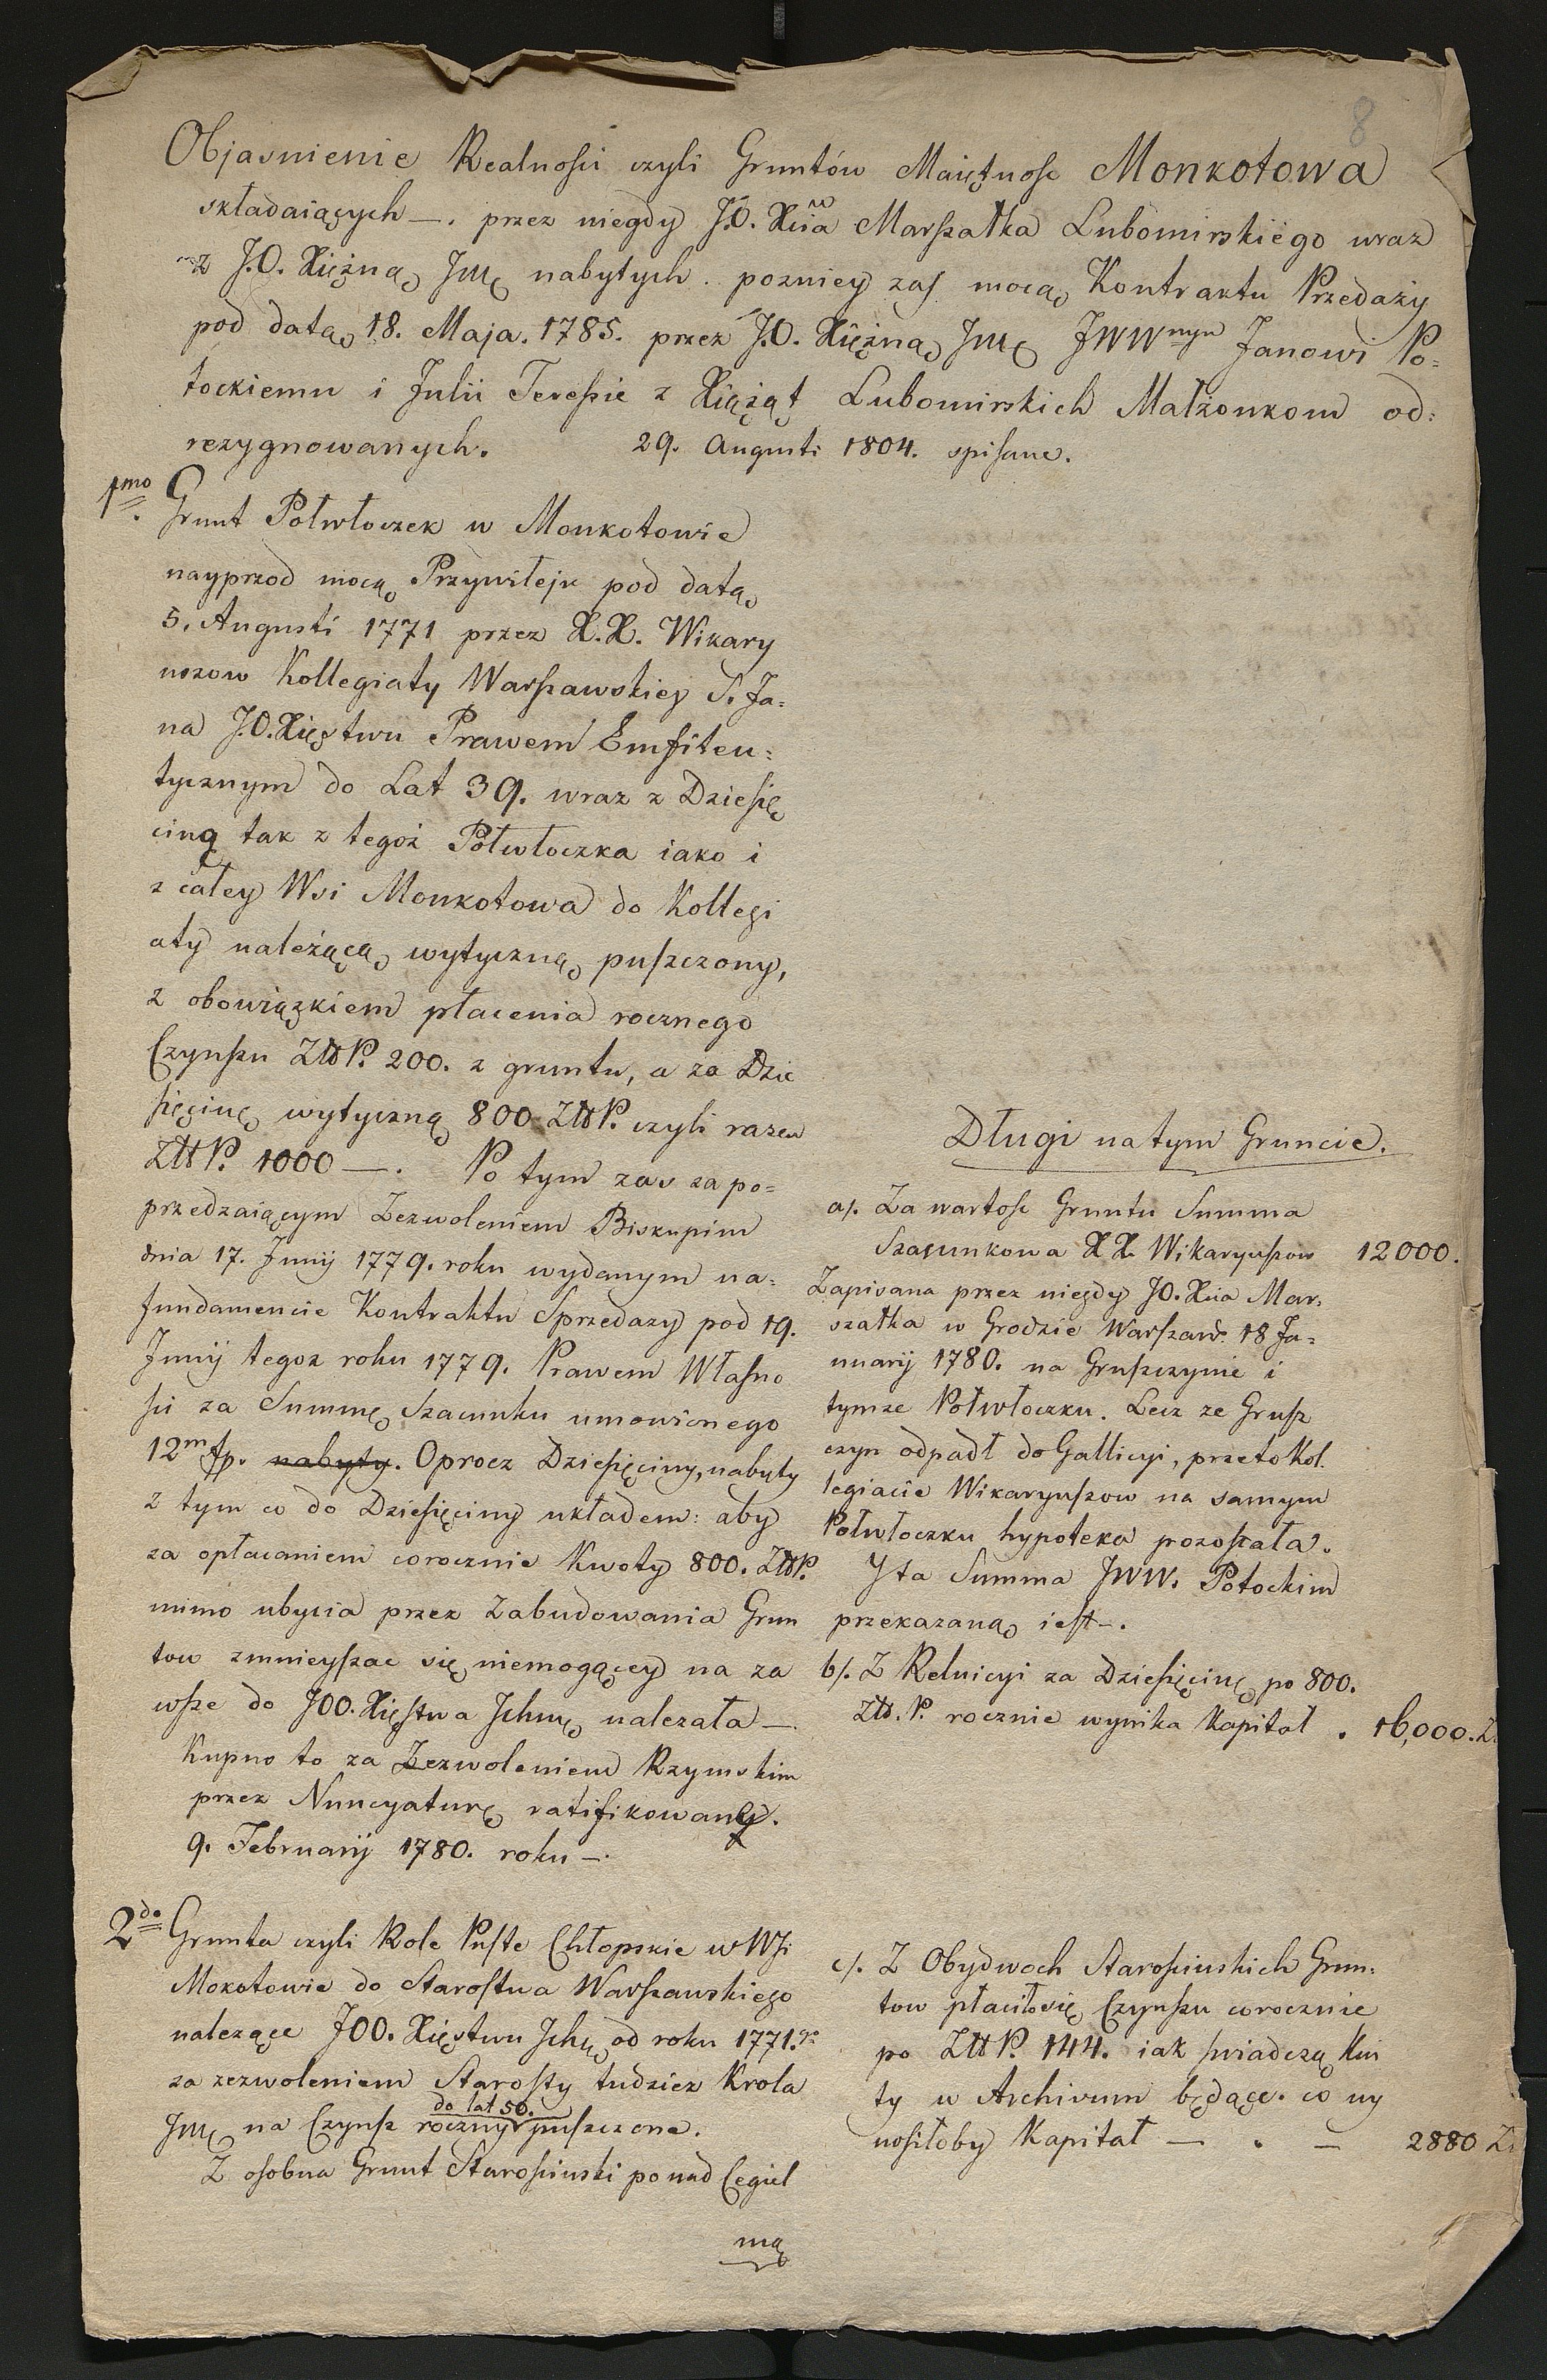 8
Objasnienie Realnosci czyli Gruntów Maiętnosc Monkotowa
składaiących —. przez niegdy J.O. Xcia Marszałka Lubomirskiego wraz
z J.O. Xiężną Jmę nabytych. pozniey zas mocą Kontraktu Przedaży
pod datą 18. Maja. 1785. przez J.O. Xiężną Jmę JWWnym Janowi Po=
tockiemu i Julii Teressie z Xiążąt Lubomirskich Małżonkom od=
rezygnowanych. 29. Augusti 1804. spisane.
1mo Grunt Połwłoczek w Monkotowie
nayprzod mocą Przywileju pod datą
5. Augusti 1771 przez X.X. Wikary
uszow Kollegiaty Warszawskiey S. Ja=
na J.O. Xięstwu Prawem Emfiteu=
tycznym do Lat 39. wraz z Dziesię
ciną tak z tegoż Połwłoczka iako i
z całey Wsi Monkotowa do Kollegi
aty należącą wytyczną puszczony,
z obowiązkiem płacenia rocznego
Czynszu ZłłP. 200. z gruntu, a za Dzie
sięcinę wytyczną 800 ZłłP. czyli razem
ZłłP. 1000 —. Po tym zas za po=
przedzaiącym Zezwoleniem Biskupim
dnia 17. Junij 1779. roku wydanym na=
fundamencie Kontraktu Sprzedazy pod 19.
Junij tegoz roku 1779. Prawem Własno
sci za Summę Szacunku umowionego
12m fp. nabyty. Oprocz Dziesięciny, nabyty
z tym co do Dziesięciny układem: aby
za opłacaniem corocznie Kwoty 800. ZłłP.
mimo ubycia przez Zabudowania Grun
tow zmnieyszac się niemogącey na za
wsze do JOO. Xięstwa Ichmę nalezała —.
Kupno to za Zezwoleniem Rzymskim
przez Nuncyaturę ratifikowany.
9. Februarij 1780. roku —.
Długi na tym Gruncie.
a/. Za wartosc Gruntu Summa
Szacunkowa X X. Wikaryuszow 12000.
Zapisana przez niegdy JO. Xcia Mar=
szałka w Grodzie Warszaw. 18 Ja=
nuarij 1780. na Gruszczynie i
tymze Połwłoczku. Lecz ze Grusz
czyn odpadł do Gallicyi, przeto Kol
legiacie Wikaryuszow na samym
Połwłoczku hypoteka pozostała.
Y ta Summa JWW. Potockim
przekazaną iest —.
b/. Z Reluicyi za Dziesięcinę po 800.
Złł. P. rocznie wynika Kapitał . 16,000. Z
2do Grunta czyli Role Puste Chłopskie w Wsi
Mokotowie do Starostwa Warszawskiego
nalezące JOO. Xięstwu Ichę od roku 1771. r.
za zezwoleniem Starosty tudziez Krola
do lat 50.
Jmę na Czynsz roczny puszczone.
Z osobna Grunt Starosciński ponad Cegiel
nią
c/. Z Obydwoch Starościnskich Grun=
tow płaciło się Czynszu corocznie
po ZłłP. 144. iak swiadczą Kwi
ty w Archivum będące. co wy
nosiłoby Kapitał — . — 2880 Zł